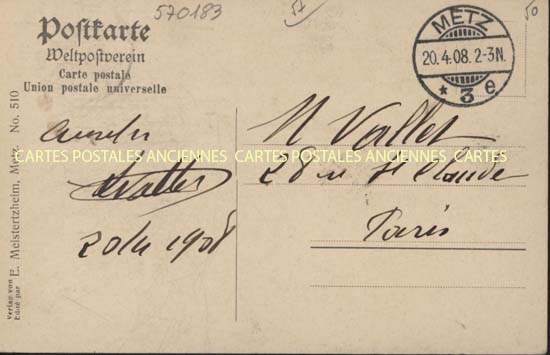 570183
57
50
Postkarte
Weltpostverein
Carte postale
Union postale universelle
METZ
20.4.08. 2-3N.
* 3 e
Vallet
20 1908
M Vallet
28 rue St Claude
Paris
CARTES POSTALES ANCIENNES CARTES POSTALES ANCIENNES CARTES POSTALES ANCIENNES
Verlag von
Edité par
E. Meistertzheim, Metz. No. 510